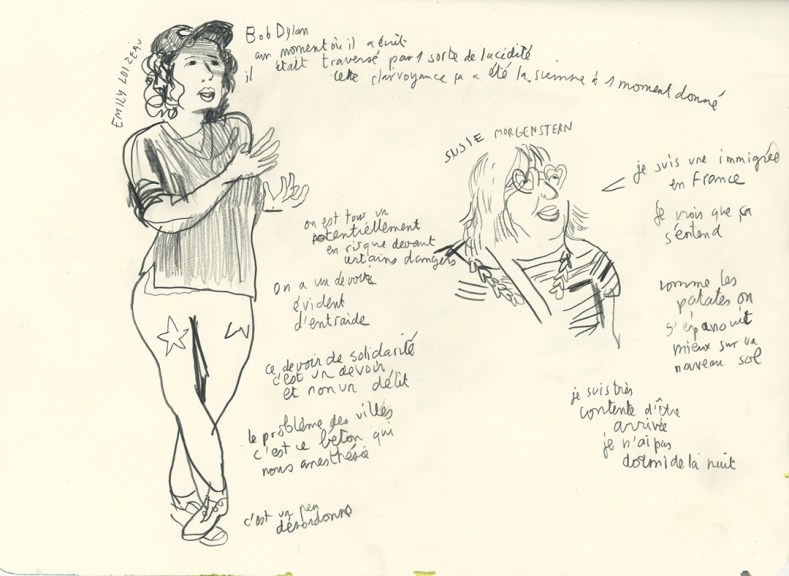 EMILY LOIZEAU
Bob Dylan
au moment où il a écrit
il était traversé par 1 sorte de lucidité
cette clairvoyance ça a été la sienne à 1 moment donné
on est tous un
potentiellement
en risque devant
certains dangers
on a un devoir
évident
d'entraide
ce devoir de solidarité
c'est un devoir
et non un délit
le problème des villes
c'est ce béton qui
nous anesthésie
c'est un peu
désordonné
SUSIE MORGENSTERN
je suis une immigrée
en France
je crois que ça
s'entend
comme les
patates on
s'épanouit
mieux sur un
nouveau sol
je suis très
contente d'être
arrivée
je n'ai pas
dormi de la nuit